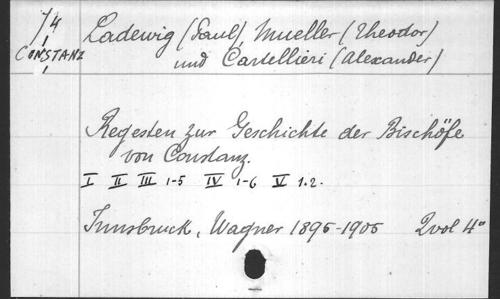 74 Ladewig (Paul), Mueller (Theodor)
CONSTANZ und Cartellieri (Alexander)
Regesten zur Geschichte der Bischöfe
von Constanz.
I II III 1-5 IV 1-6 V 1.2.
Innsbruck, Wagner 1895-1905 2vol 4°